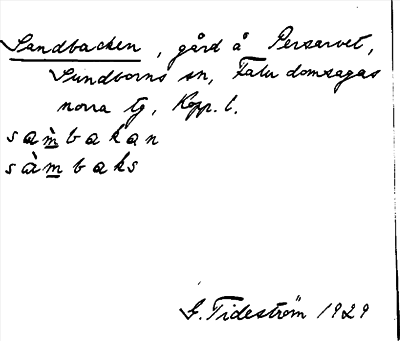 Sandbacken, gård å Persarvet,
Sundborns sn, Falu domsagas
norra tg, Kopp. l.
sam̀bakan
sàm̲baks
G. Tideström 1929